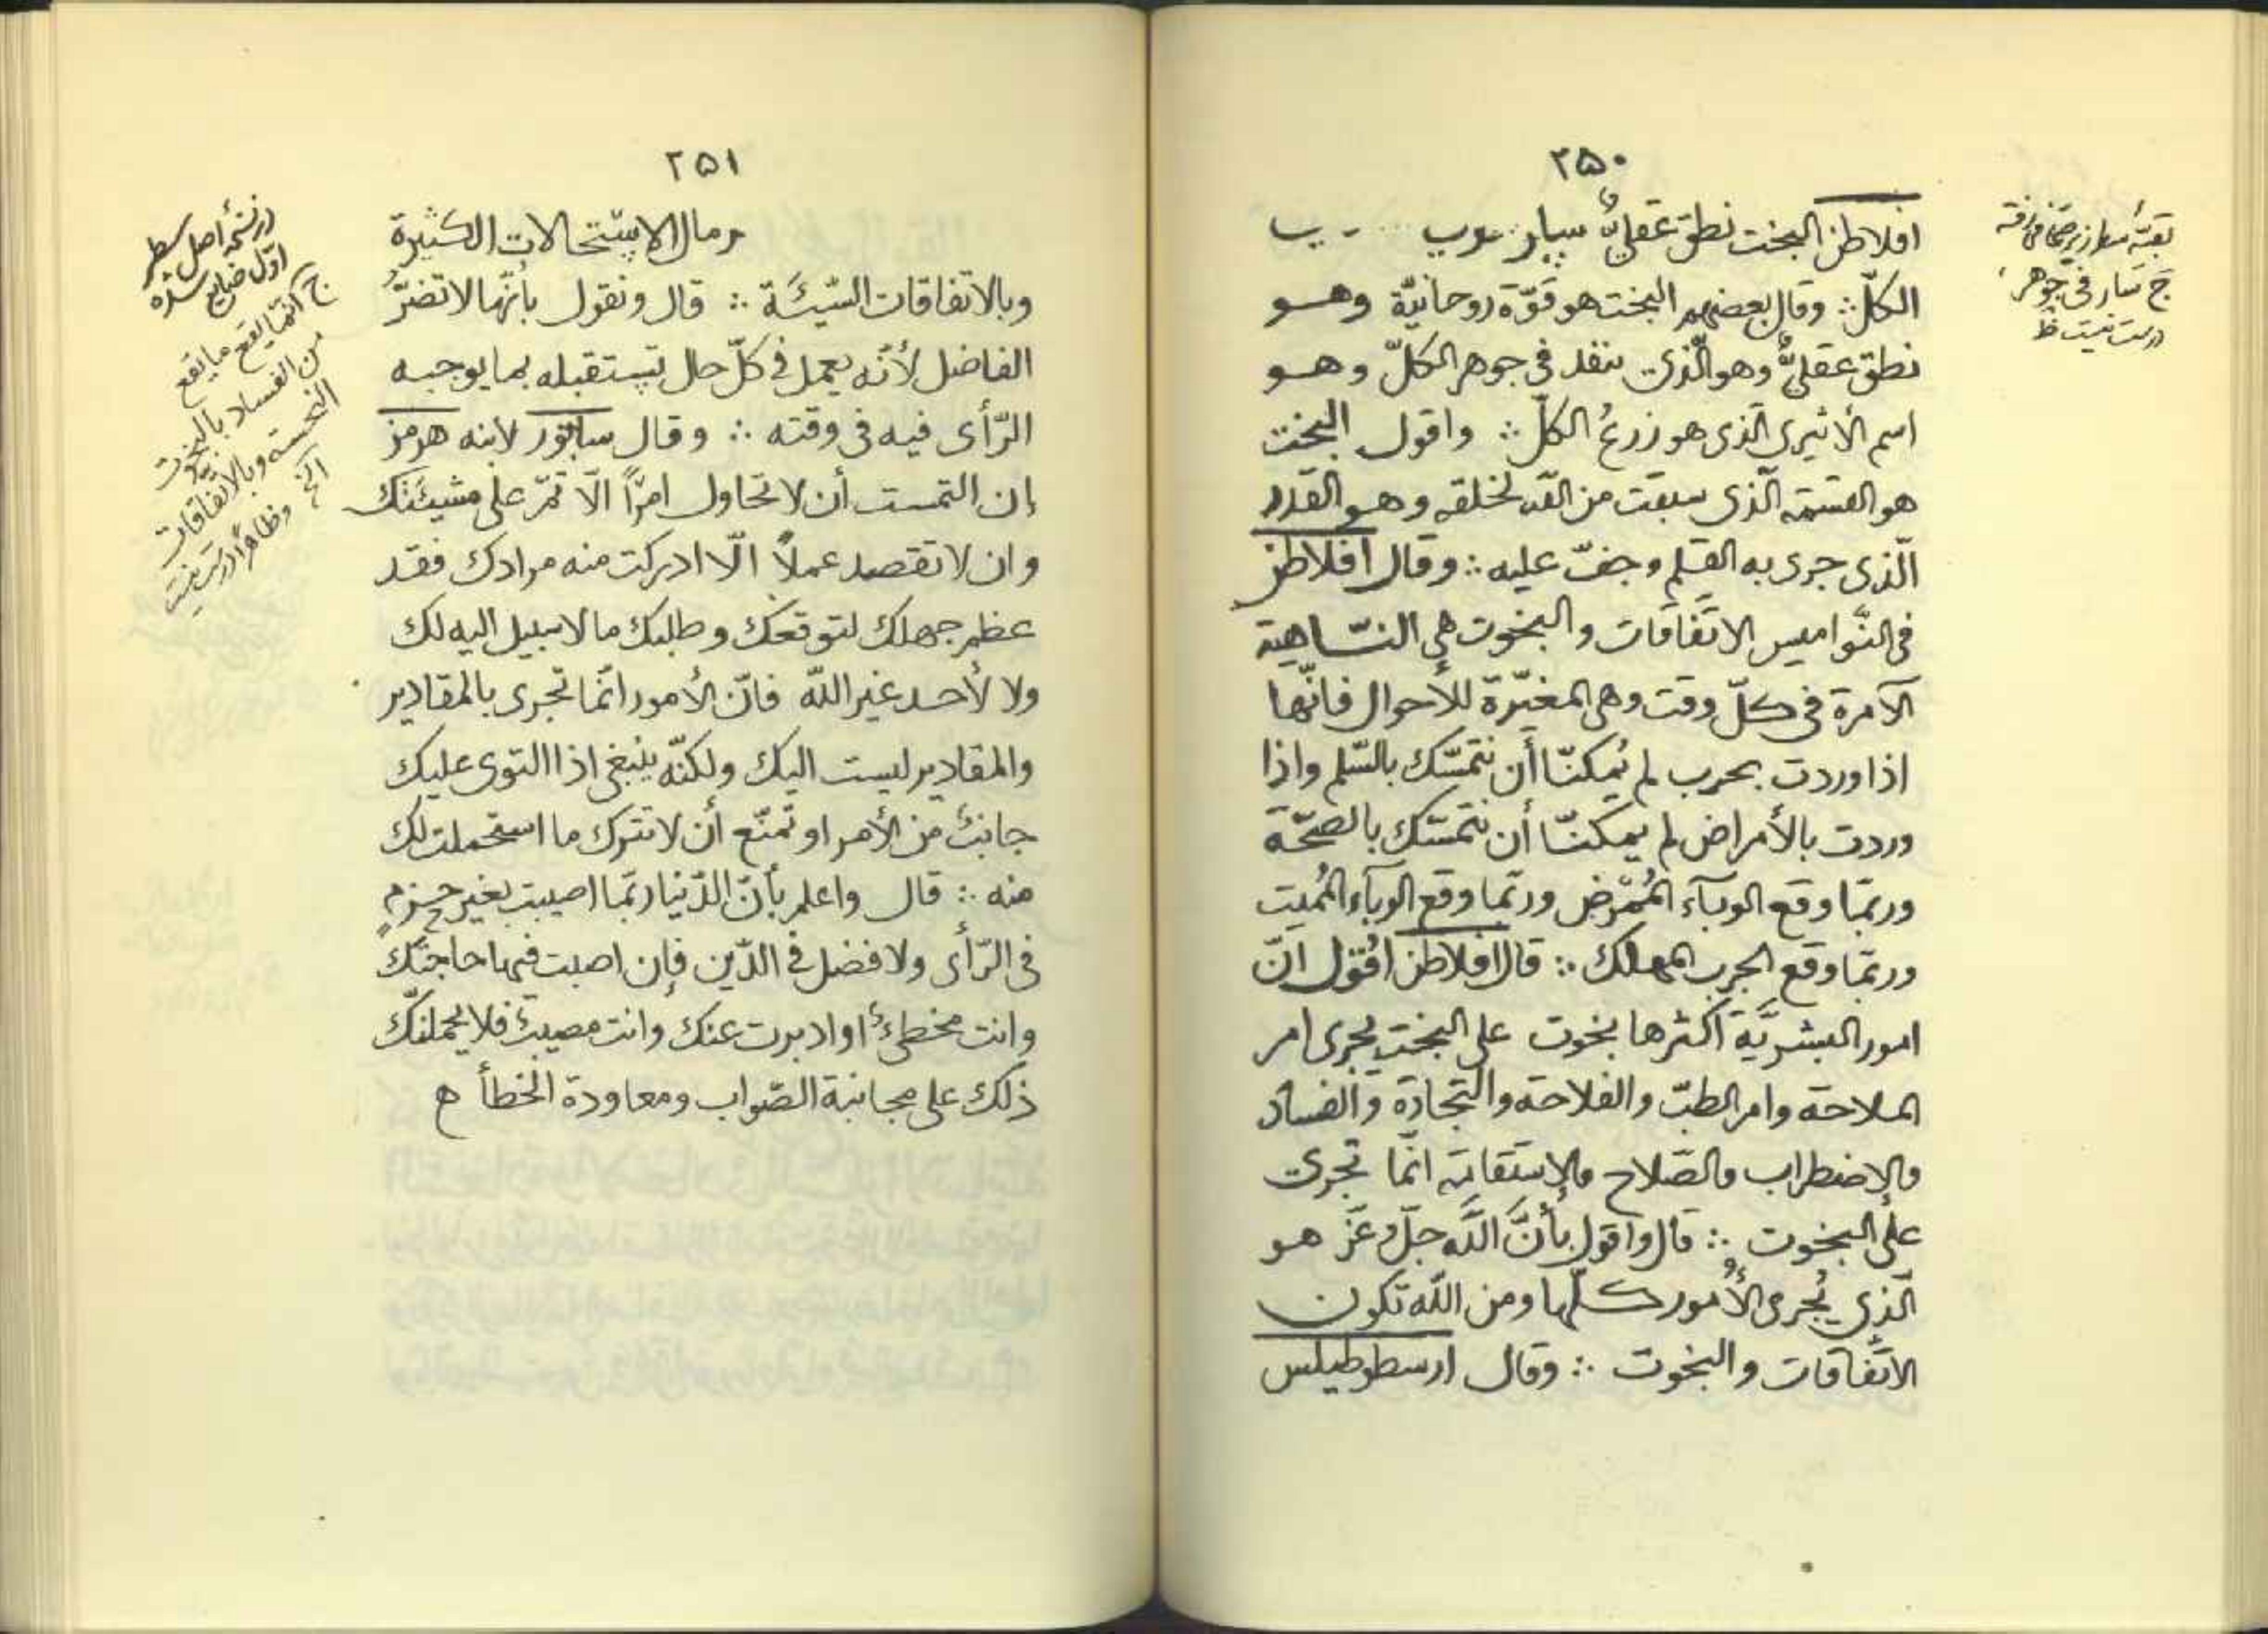 ٢٥٠
افلاطن البخت نطق عقلىّ
الكلّ ∴ وقال بعضهم البخت هو قوّة روحانيّة وهو
نطق عقلىّ وهو الّذى ينفد فى جوهر الكلّ وهو
اسم الأثيرى الّذى هو زرعُ الكلّ ∴ واقول البخت
هو القسمة الّذى سبقت من اللّه لخلقه وهو القدر
الّذى جرى به القلم وجفّ عليه ∴ وقال افلاطن
فى النّواميس الاتّفاقات والبخوت هى النّاهية
الآمرة فى كلّ وقت وهى المغيّرة للأحوال فانّها
اذا وردت بحرب لم يُمكنّا أن نتمسّك بالسّلم واذا
وردت بالأمراض لم يمكنّا أن نتمسّك بالصحّة
وربّما وقع الوبآء المُمْرض وربّما وقع الوبآء المُميت
وربّما وقع الجرب المهلك ∴ قال افلاطن افنقول انّ
امور البشريّة اكثرها بخوت على البخت يجرى امر
الملاحة وامر الطبّ والفلاحة والتّجارة والفساد
والاضطراب والصّلاح والاستقامة انّما تجرى
على البخوت ∴ قال واقول بأنّ اللّه جلّ وعَزّ هو
الّذى يُجرى الأُمور كلّها ومن اللّه تكون
الاتّفاقات والبخوت ∴ وقال ارسطوطيلس
بقيّه سطر زير صحّافى رفته
ج سار فى جوهر
درست نيست ظ
٢٥١
ومال الاستحالات الكثيرة
وبالاتفاقات السّيّئة ∴ قال ونقول بأنّها لا تضرُّ
الفاضل لأنّه يعمل فى كلّ حال تستقبله بما يوجبه
الرّأى فيه فى وقته ∴ وقال سابور لابنه هرمز
إن التمست أن لا تحاول امرًا الّا تمّ على مشيئتك
وان لا تقصد عملاً الّا ادركت منه مرادك فقد
عظم جهلك لتوقعك وطلبك ما لا سبيل اليه لك
ولا لأحد غير اللّه فانّ الأمور انّما تجرى بالمقادير
والمقادير ليست اليك ولكنّه ينبغى اذا التوى عليك
جانبٌ من الأمر او تمنّع أن لا تترك ما استحملت لك
منه ∴ قال واعلم بأنّ الدّنيا ربّما اصيبت بغير حزمٍ
فى الرّأى ولا فضل فى الدّين فإن اصبت فيها حاجتك
وانت مخطئٌ او ادبرت عنك وانت مصيبٌ فلا يحملنّك
ذلك على مجانبة الصّواب ومعاودة الخطأ ه
در نسخهٔ اصل سطر
اوّل ضايع شده
ج انّما يقع ما يقع
من الفساد بالبخوت
النحسة وبالاتّفاقات
الخ وظاهراً درست نيست